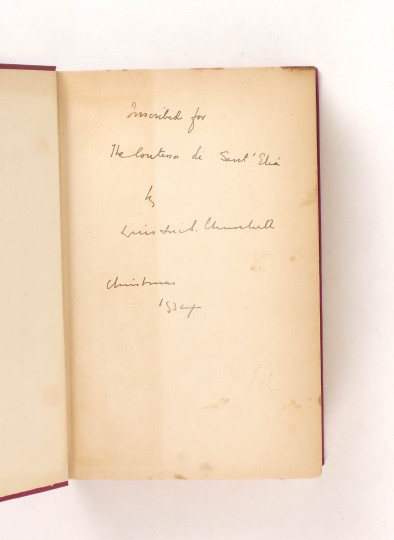 Inscribed for
The Contessa de Sant' Elia
by
Winston S. Churchill
Christmas
1934